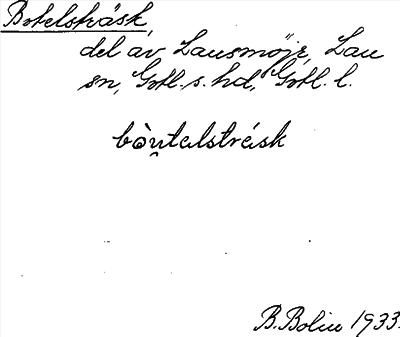 Botelsträsk,
del av Lausmyr, Lau
sn, Gotl. s. hd, Gotl. l.
bòu̯talstrésk
B. Bolin 1933.